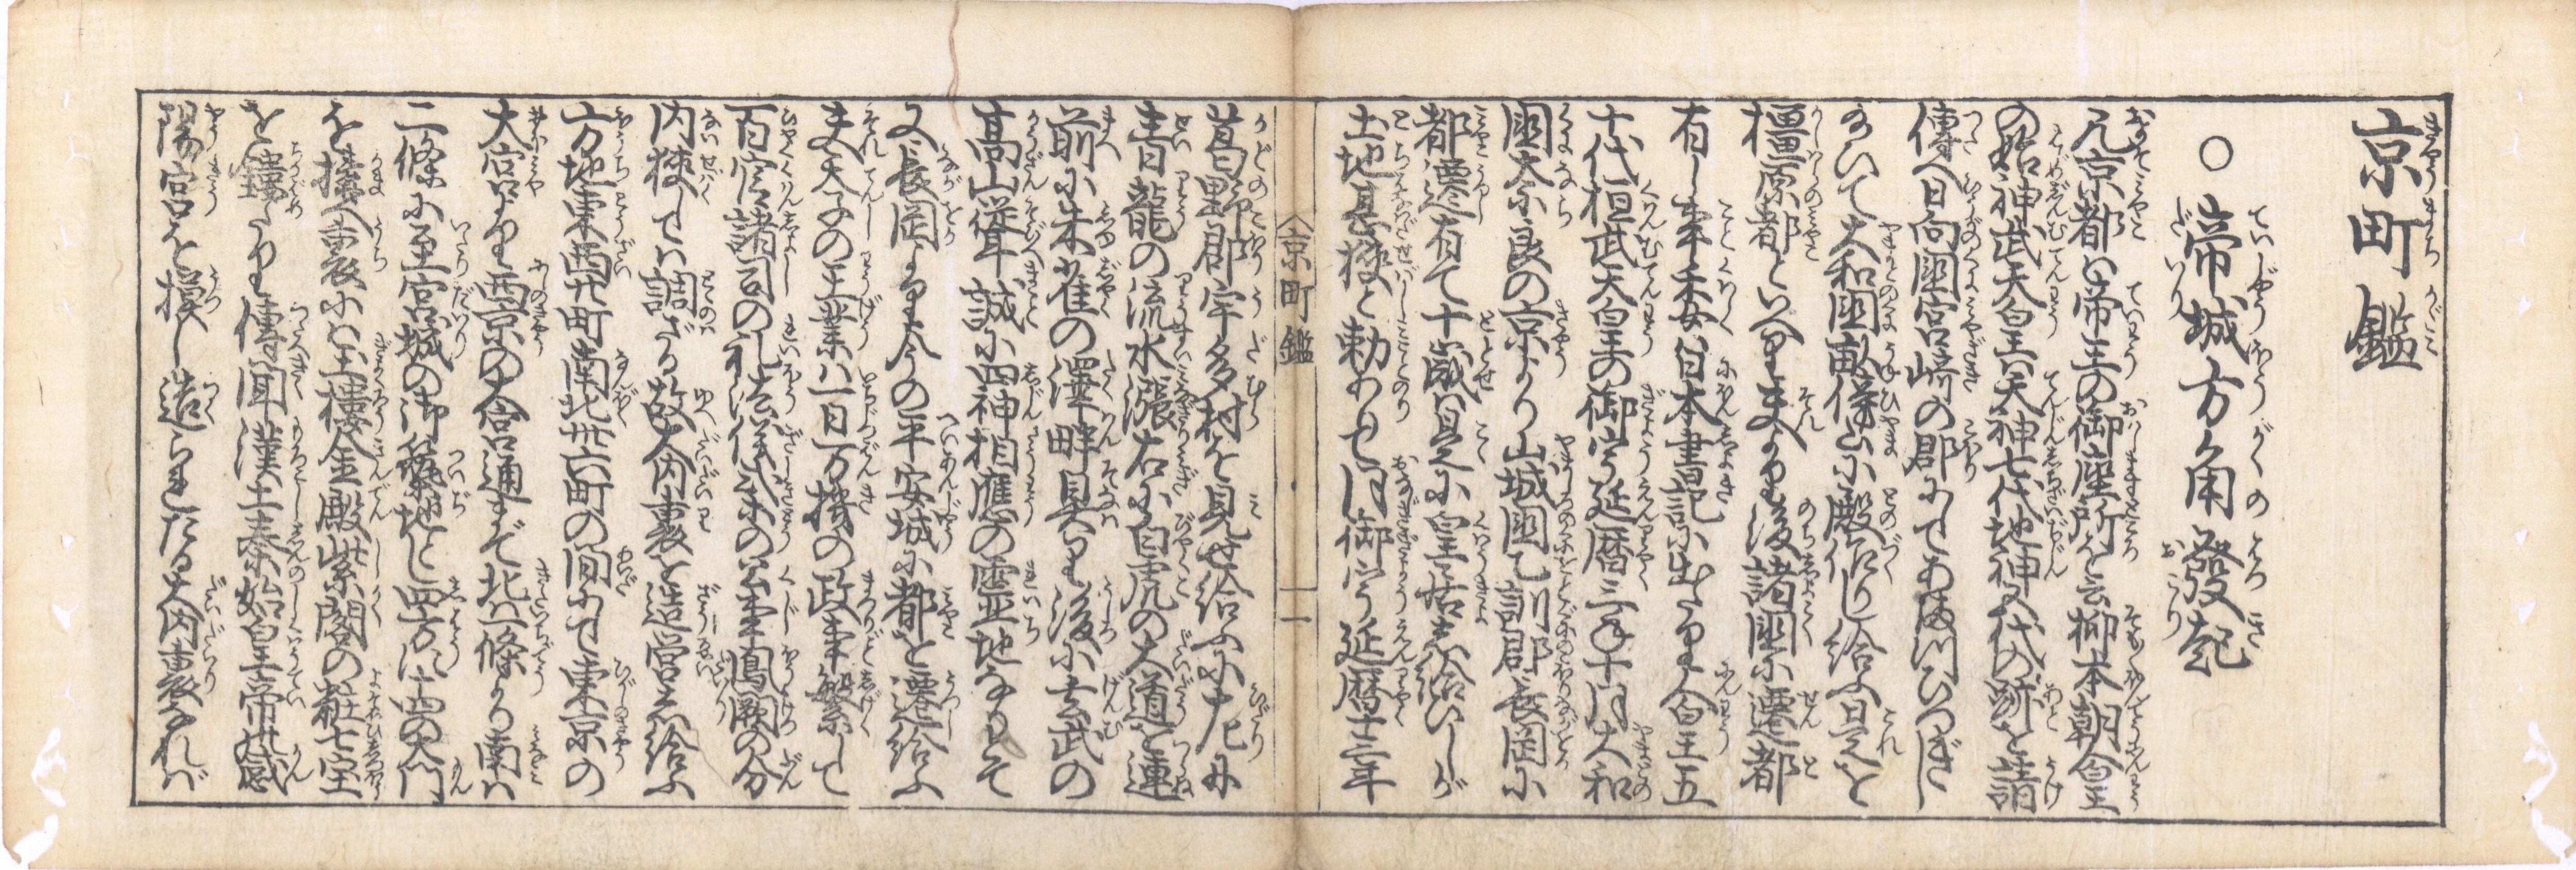 京町鑑
○帝城方角發起
凡京都は帝王の御座所を云抑本朝人皇
の始神武天皇は天神七代地神五代の跡を請
傳へ日向国宮﨑の郡にてあまつひつぎに
おいて大和国畝傍山に殿作りし給ふ是を
橿原都といへり夫より後諸国に遷都
有し事委く日本書記に出たり人皇五
十代桓武天皇の御宇延暦三年十月大和
国奈良の京より山城国乙訓郡長岡に
都遷有て十歳是に皇居し給ひしが
土地甚狭しと勅ありて同御宇延暦十二年
京町鑑 一
葛野郡宇多村を見せ給ふに左に
青龍の流水漲右に白虎の大道を連
前に朱雀の澤畔具はり後に玄武の
高山聳誠に四神相應の霊地なりとて
又長岡より今の平安城に都を遷給ふ
夫天子の王業は一日万機の政事繁して
百官諸司の礼法儀式の公事鳳闕の分
内狭しては調ざる故大内裏を造営し給ふ
方地東西廿町南北卅六町の間にて東京の
大宮より西京の大宮通まで北は一條より南は
二條に至宮城の御築地し四方に十四の大門
を搆へ内裏には玉樓金殿紫閣の粧七宝
を鏤たり傳聞漢土秦始皇帝の咸
陽宮を摸し造られたる大内裏なれば